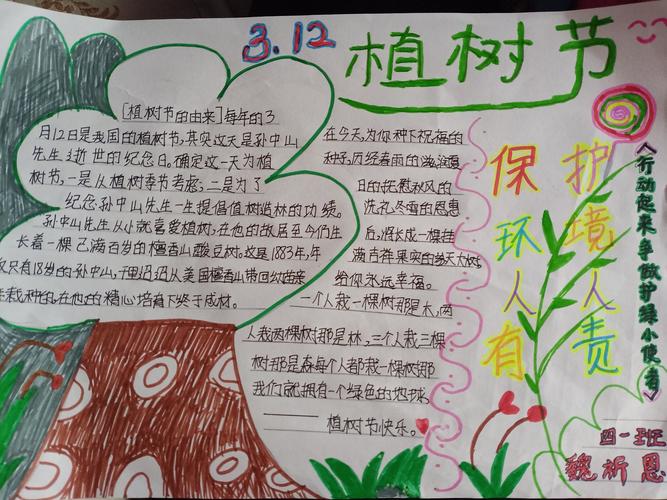 3.12
植树节
[植树节的由来]每年的3
月12日是我国的植树节,其实这天是孙中山
先生逝世的纪念日,确定这一天为植
树节,一是从植树季节考虑;二是为了
纪念孙中山先生一生提倡植树造林的功绩。
孙中山先生从小就喜爱植树,在他的故居至今仍生
长着一棵已满百岁的檀香山酸豆树。这是1883年,年
仅只有18岁的孙中山,
从美国檀香山带回幼苗亲
栽种的,在他的精心培育下终于成材。
在今天,为你种下祝福的
种子,历经春雨的滋润夏
日的抚慰秋风的
洗礼冬雪的恩惠
后,将长成一棵挂
满吉祥果实的参天大树,
给你永远幸福。
一个人栽一棵树那是木,两
人栽两棵树那是林,三个人栽三棵
树那是森每个人都栽一棵树那
我们就拥有一个绿色的地球,
——植树节快乐。
保护环境人人有责
《行动起来争做护绿小使者》
四一班
魏祈恩